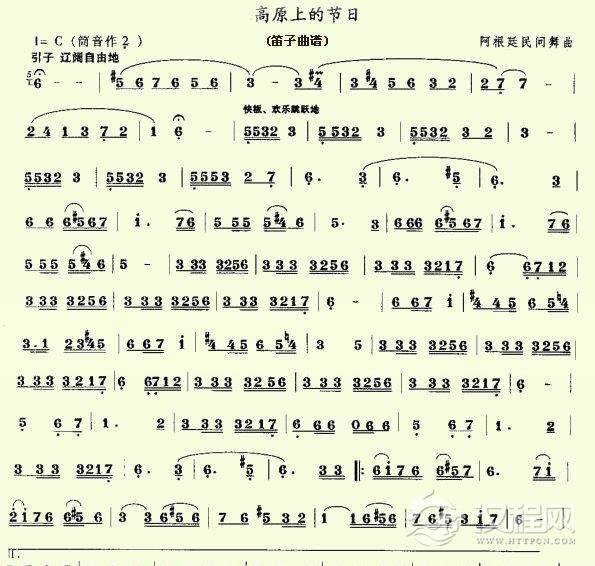 高原上的节日
1=C (筒音作2)
(笛子曲谱)
阿根廷民间舞曲
引子 辽阔自由地
6 - - | #5 6 7 6 5 6 | 3 - 3 #4 | 3 #4 5 6 3 2 | 2 7 7 -
快板、欢乐跳跃地
2 4 1 3 7 2 | 1 6 - - | 5532 3 | 5532 3 | 5532 3 2 | 5532 3
5532 3 | 5532 3 | 5553 2 7 | 6. 3 | 6. #5 | 6. 3
6 6 6#567 | i. 76 | 5 55 5#46 | 5. 3 | 666 6#567 | i. 76
5 5 5 5#46 | 5 - | 3 33 3256 | 3 3 3 3256 | 3 33 3217 | 6 6712
3 3 3 3256 | 3 3 3 3256 | 3 3 3 3217 | 6 - | 6 67 i | #4 45 6 5♮4
3.1 23#45 | 6 6 7 i | #4 45 6 5♮4 | 3 5 | 3 33 3256 | 3 33 3256
3 3 3 3217 | 6 6712 | 3 3 3 3256 | 3 3 3 3256 | 3 33 3217 | 6 -
5 6 7 | 1. 2 | 3 33 3217 | 6 66 066 | 5 67 | 1. 2
3 33 3217 | 6. 3 | 6. #5 | 6. 3 |: 6i76 6#57 | 6. 7i
2i76 6#56 | 3 36#56 | 7 6 #5 32 | 1 16#56 | 76#53i7 | 6
汉程网
WWW.HTTPCN.COM